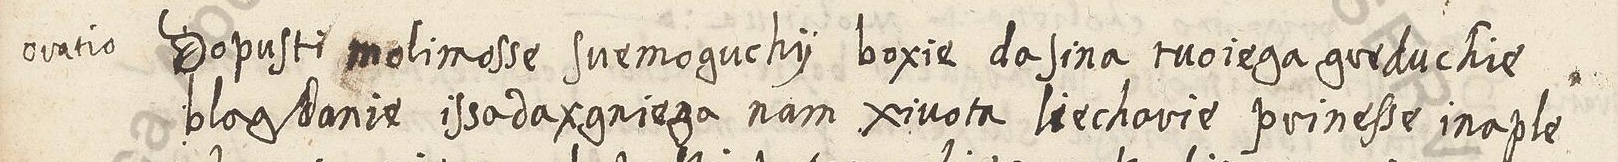 oratio Dopusti molimosse suemoguchÿ boxie dasina tuoiega greduchie
blagdanie issadaxgniega nam xiuota liecharie prinesse inaple